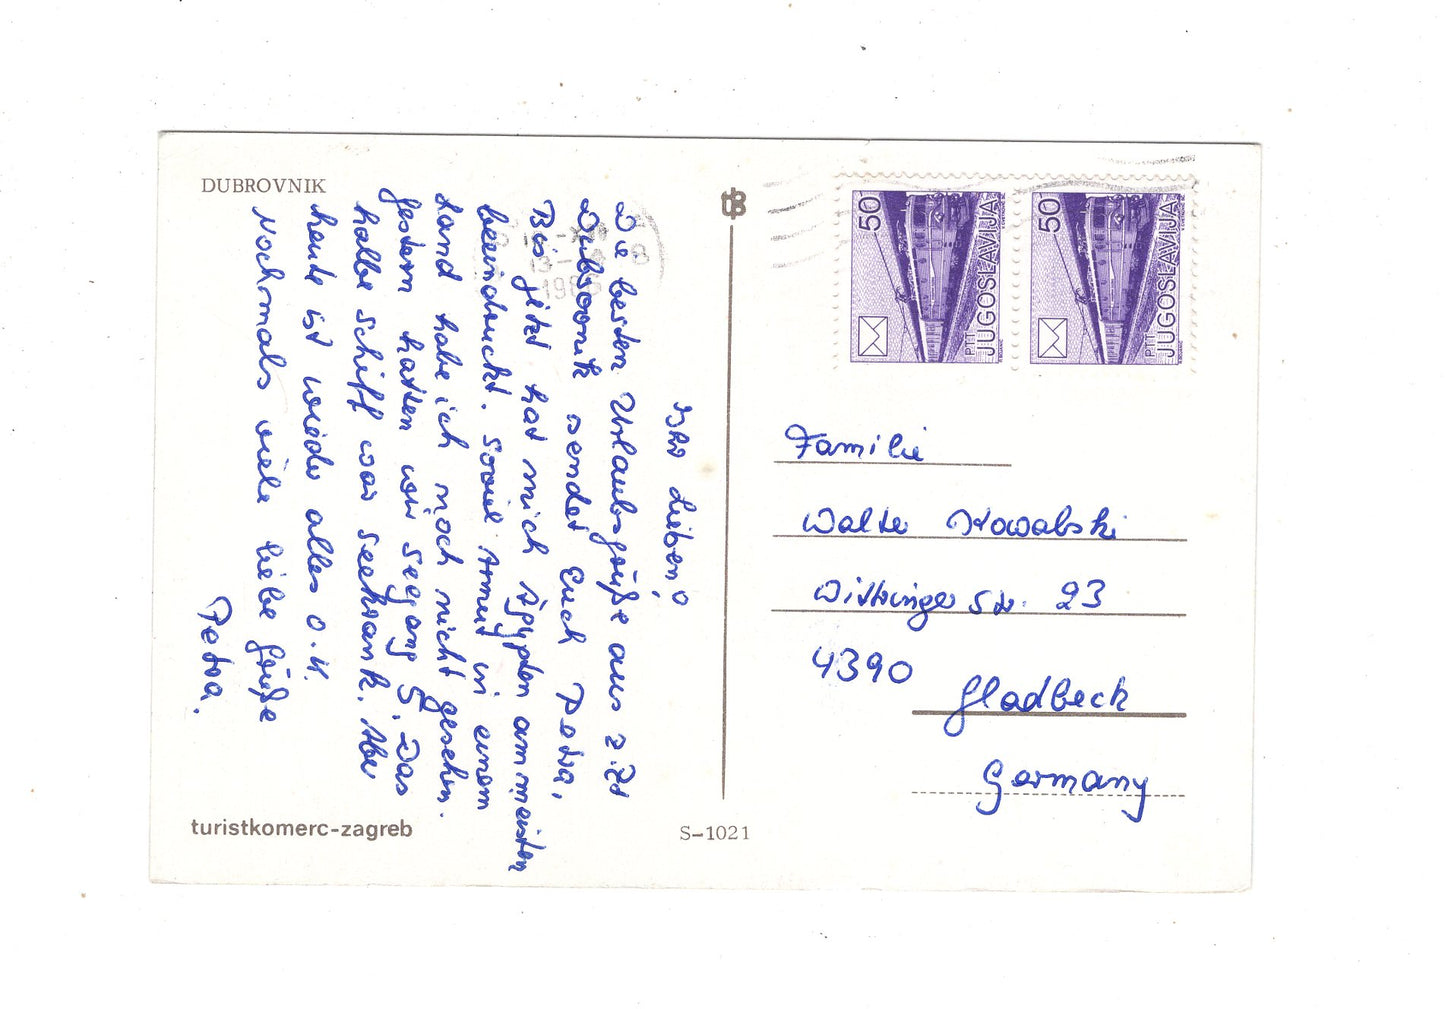 DUBROVNIK
Ihr Lieben!
Die besten Urlaubsgrüße aus z.Zt
Dubrovnik sendet Euch Petra,
Bis jetzt hat mich Ägypten am meisten
beeindruckt. Soviel Armut in einem
Land habe ich noch nicht gesehen.
Gestern hatten wir Seegang 5. Das
halbe Schiff war seekrank. Aber
heute ist wieder alles o.k.
Nochmals viele liebe Grüße
Petra.
turistkomerc-zagreb
S-1021
1986
50
PTT
JUGOSLAVIJA
50
PTT
JUGOSLAVIJA
Familie
Walter Kowalski
Wittringer Str. 23
4390
Gladbeck
Germany